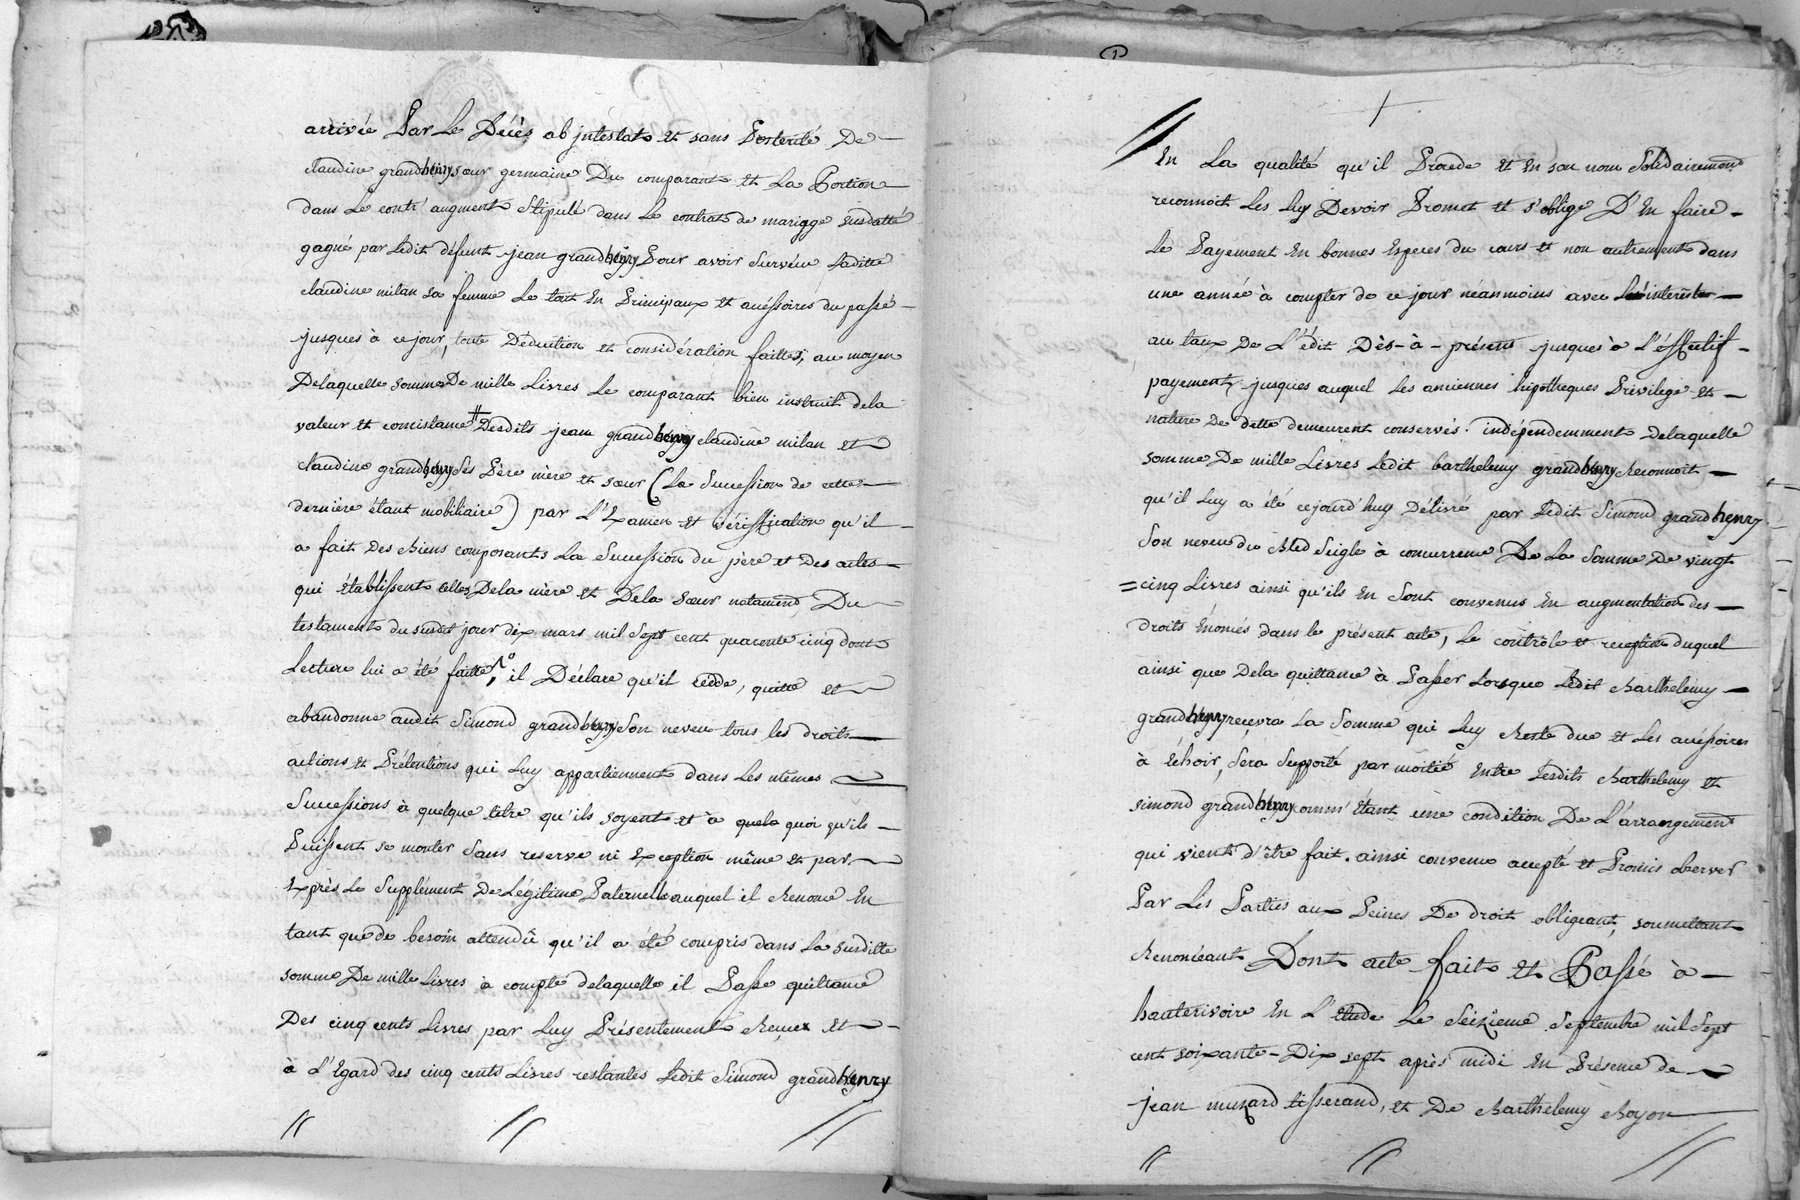 arrivée Par Le Décès ab jntéstat et sans Posterité De
claudine grandhenry sœur germaine Du comparant et La Portion
dans Le contr'augment stipulé dans Le contrat de mariage susdatté
gagné par Ledit défunt jean grandhenry Pour avoir survécu Laditte
claudine milan sa femme Le tout En Principaux et accéssoires du passé
jusques à ce jour, toute Déduction et considération faittes, au moyen
Delaquelle somme De mille Livres Le comparant bien instruit dela
valeur et concistance # Desdits jean grandhenry claudine milan et
claudine grandhenry ses Père mère et sœur (La Succession de cette
dernière étant mobiliaire) par L'Examen et vériffication qu'il
a fait Des Biens composants La Succession du père et Des actes
qui établissent celles Dela mère et Dela sœur notament Du
testament du susdit jour dix mars mil Sept cent quarante cinq dont
Lecture lui a été faitte, il Déclare qu'il cedde, quitte et
abandonne audit Simond grandhenry Son neveu tous les droits
actions et Prétentions qui Luy appartiennent dans Les mêmes
Successions à quelque titre qu'ils soyent et à quels quoi qu'ils
Puissent se monter Sans reserve ni Exception même et par
Exprès Le Supplément De Légitime Paternelle auquel il Renonce En
tant que de besoin attendû qu'il a été compris dans La susditte
somme De mille Livres à compte delaquelle il Passe quittance
Des cinq cents Livres par Luy Présentement Reçues et
à L'Egard des cinq cents Livres restantes Ledit Simond grandhenry
En La qualité qu'il Procede et En son nom Solidairement
reconnoit Les luy Devoir Promet et s'oblige D'En faire
Le Payement En bonnes Especes du cours et non autrement dans
une année à compter de ce jour néanmoins avec L'intérêts
au taux De L'édit Dès-à-présent jusques à L'éffectif
payement, jusques auquel Les anciennes hipotheques Privilege et
nature De dette demeurent conservés. indépendemment Delaquelle
somme De mille Livres Ledit barthelemy grandhenry Reconnoit
qu'il Luy a été cejourd'huy Délivré par Ledit Simond grandhenry
Son neveu du Bled Seigle à concurrence De La Somme De vingt
=cinq Livres ainsi qu'ils En Sont convenus En augmentation des
droits Enoncés dans le présent acte, Le contrôle et reception duquel
ainsi que Dela quittance à Passer Lorsque Ledit Barthelemy
grandhenry recevra La Somme qui Luy Reste due et Les accéssoires
à Echoir, Sera Supporté par moitié Entre Lesdits Barthelemy et
simond grandhenry comm'étant une condition De L'arrangement
qui vient d'être fait. ainsi convenu accepté et Promis observer
Par Les Parties aux Peines De droit obligeant, soumettant
Renonceant Dont acte fait et Passé à
hauterivoire En L'étude Le Seizieme Septembre mil Sept
cent soixante-Dix sept après midi En Présence de
jean muzard tisserand, et De Barthelemy Royon